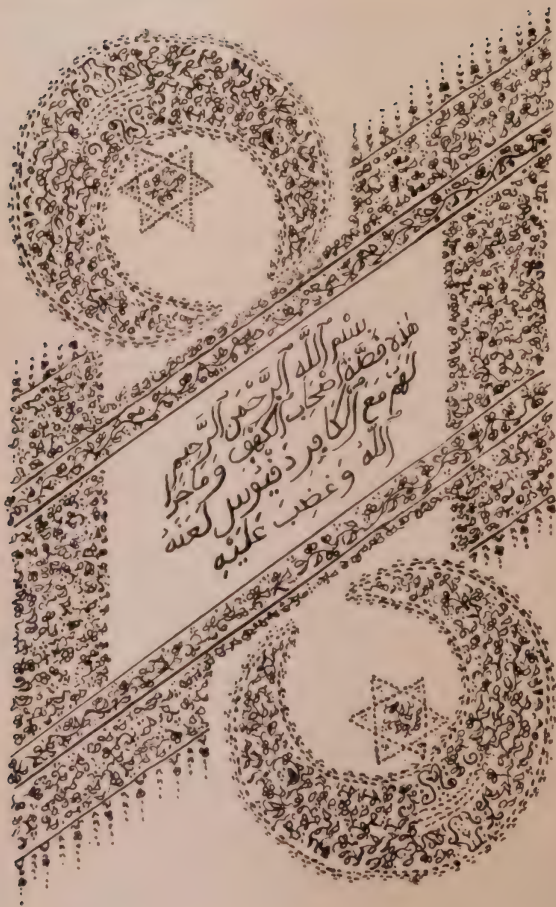 بِسْمِ اللَّهِ الرَّحْمَنِ الرَّحِيمِ
هَذِهِ قِصَّةُ أَصْحَابِ الْكَهْفِ وَمَا جَرَا
لَهُمْ مَعَ الْكَافِرِ دَقْيُوسِ لَعَنَهُ
اللَّهُ وَغَضِبَ عَلَيْهِ